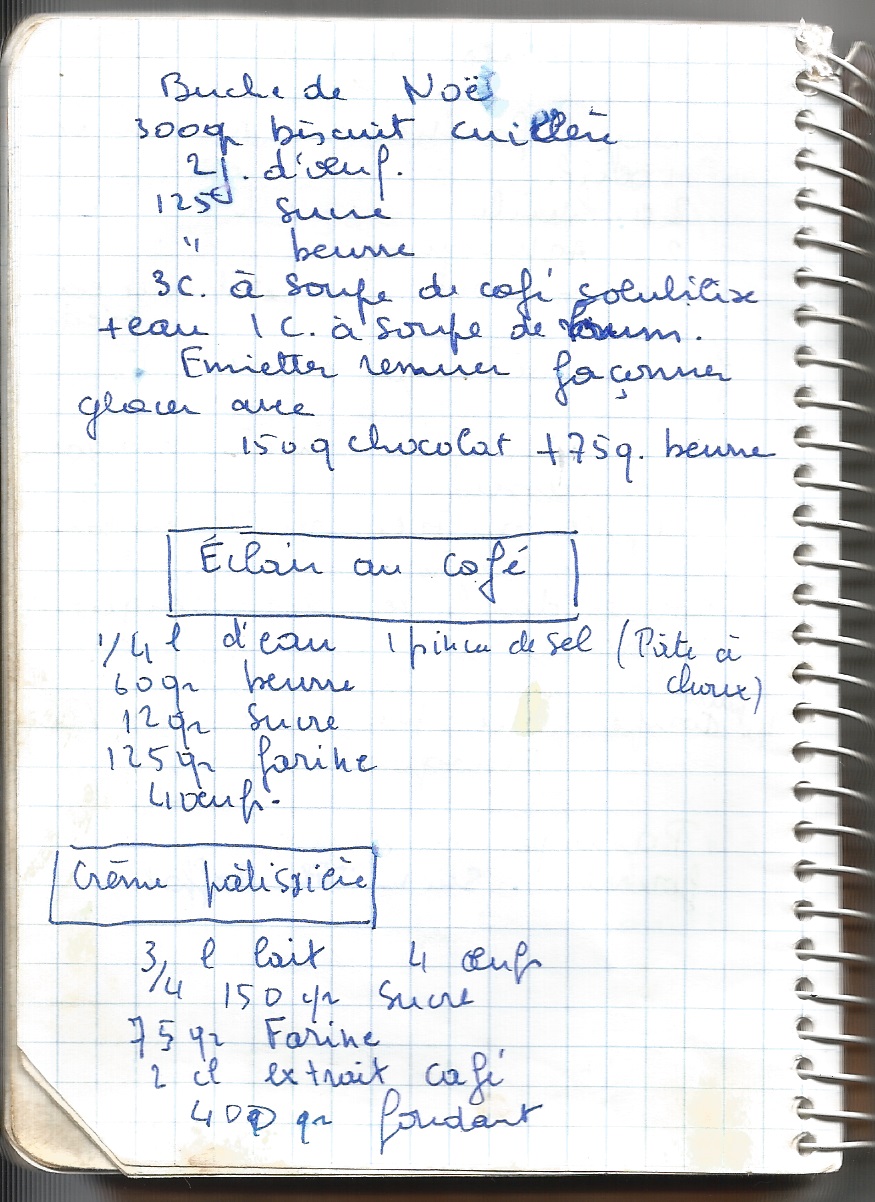 Buche de Noël
300g biscuit cuillère
2 j. d'œuf.
125g sucre
" beurre
3 C. à soupe de café solubilise
+ eau 1 C. à soupe de rhum.
Emietter remuer façonner
glacer avec
150 g chocolat + 75 g. beurre
Éclair au café
1/4 l d'eau 1 pincée de sel (Pâte à
choux)
60 gr beurre
12 gr sucre
125 gr farine
4 œufs.
Crème pâtissière
3/4 l lait 4 œufs
150 gr sucre
75 gr Farine
2 cl extrait café
400 gr fondant